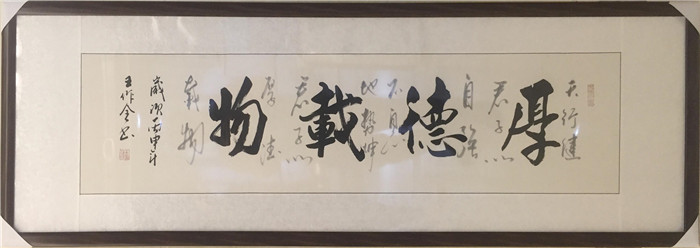 厚德載物
天行健
君子以
自強
不息
地勢坤
君子以
厚德
載物
歲次丙申年
王作全書